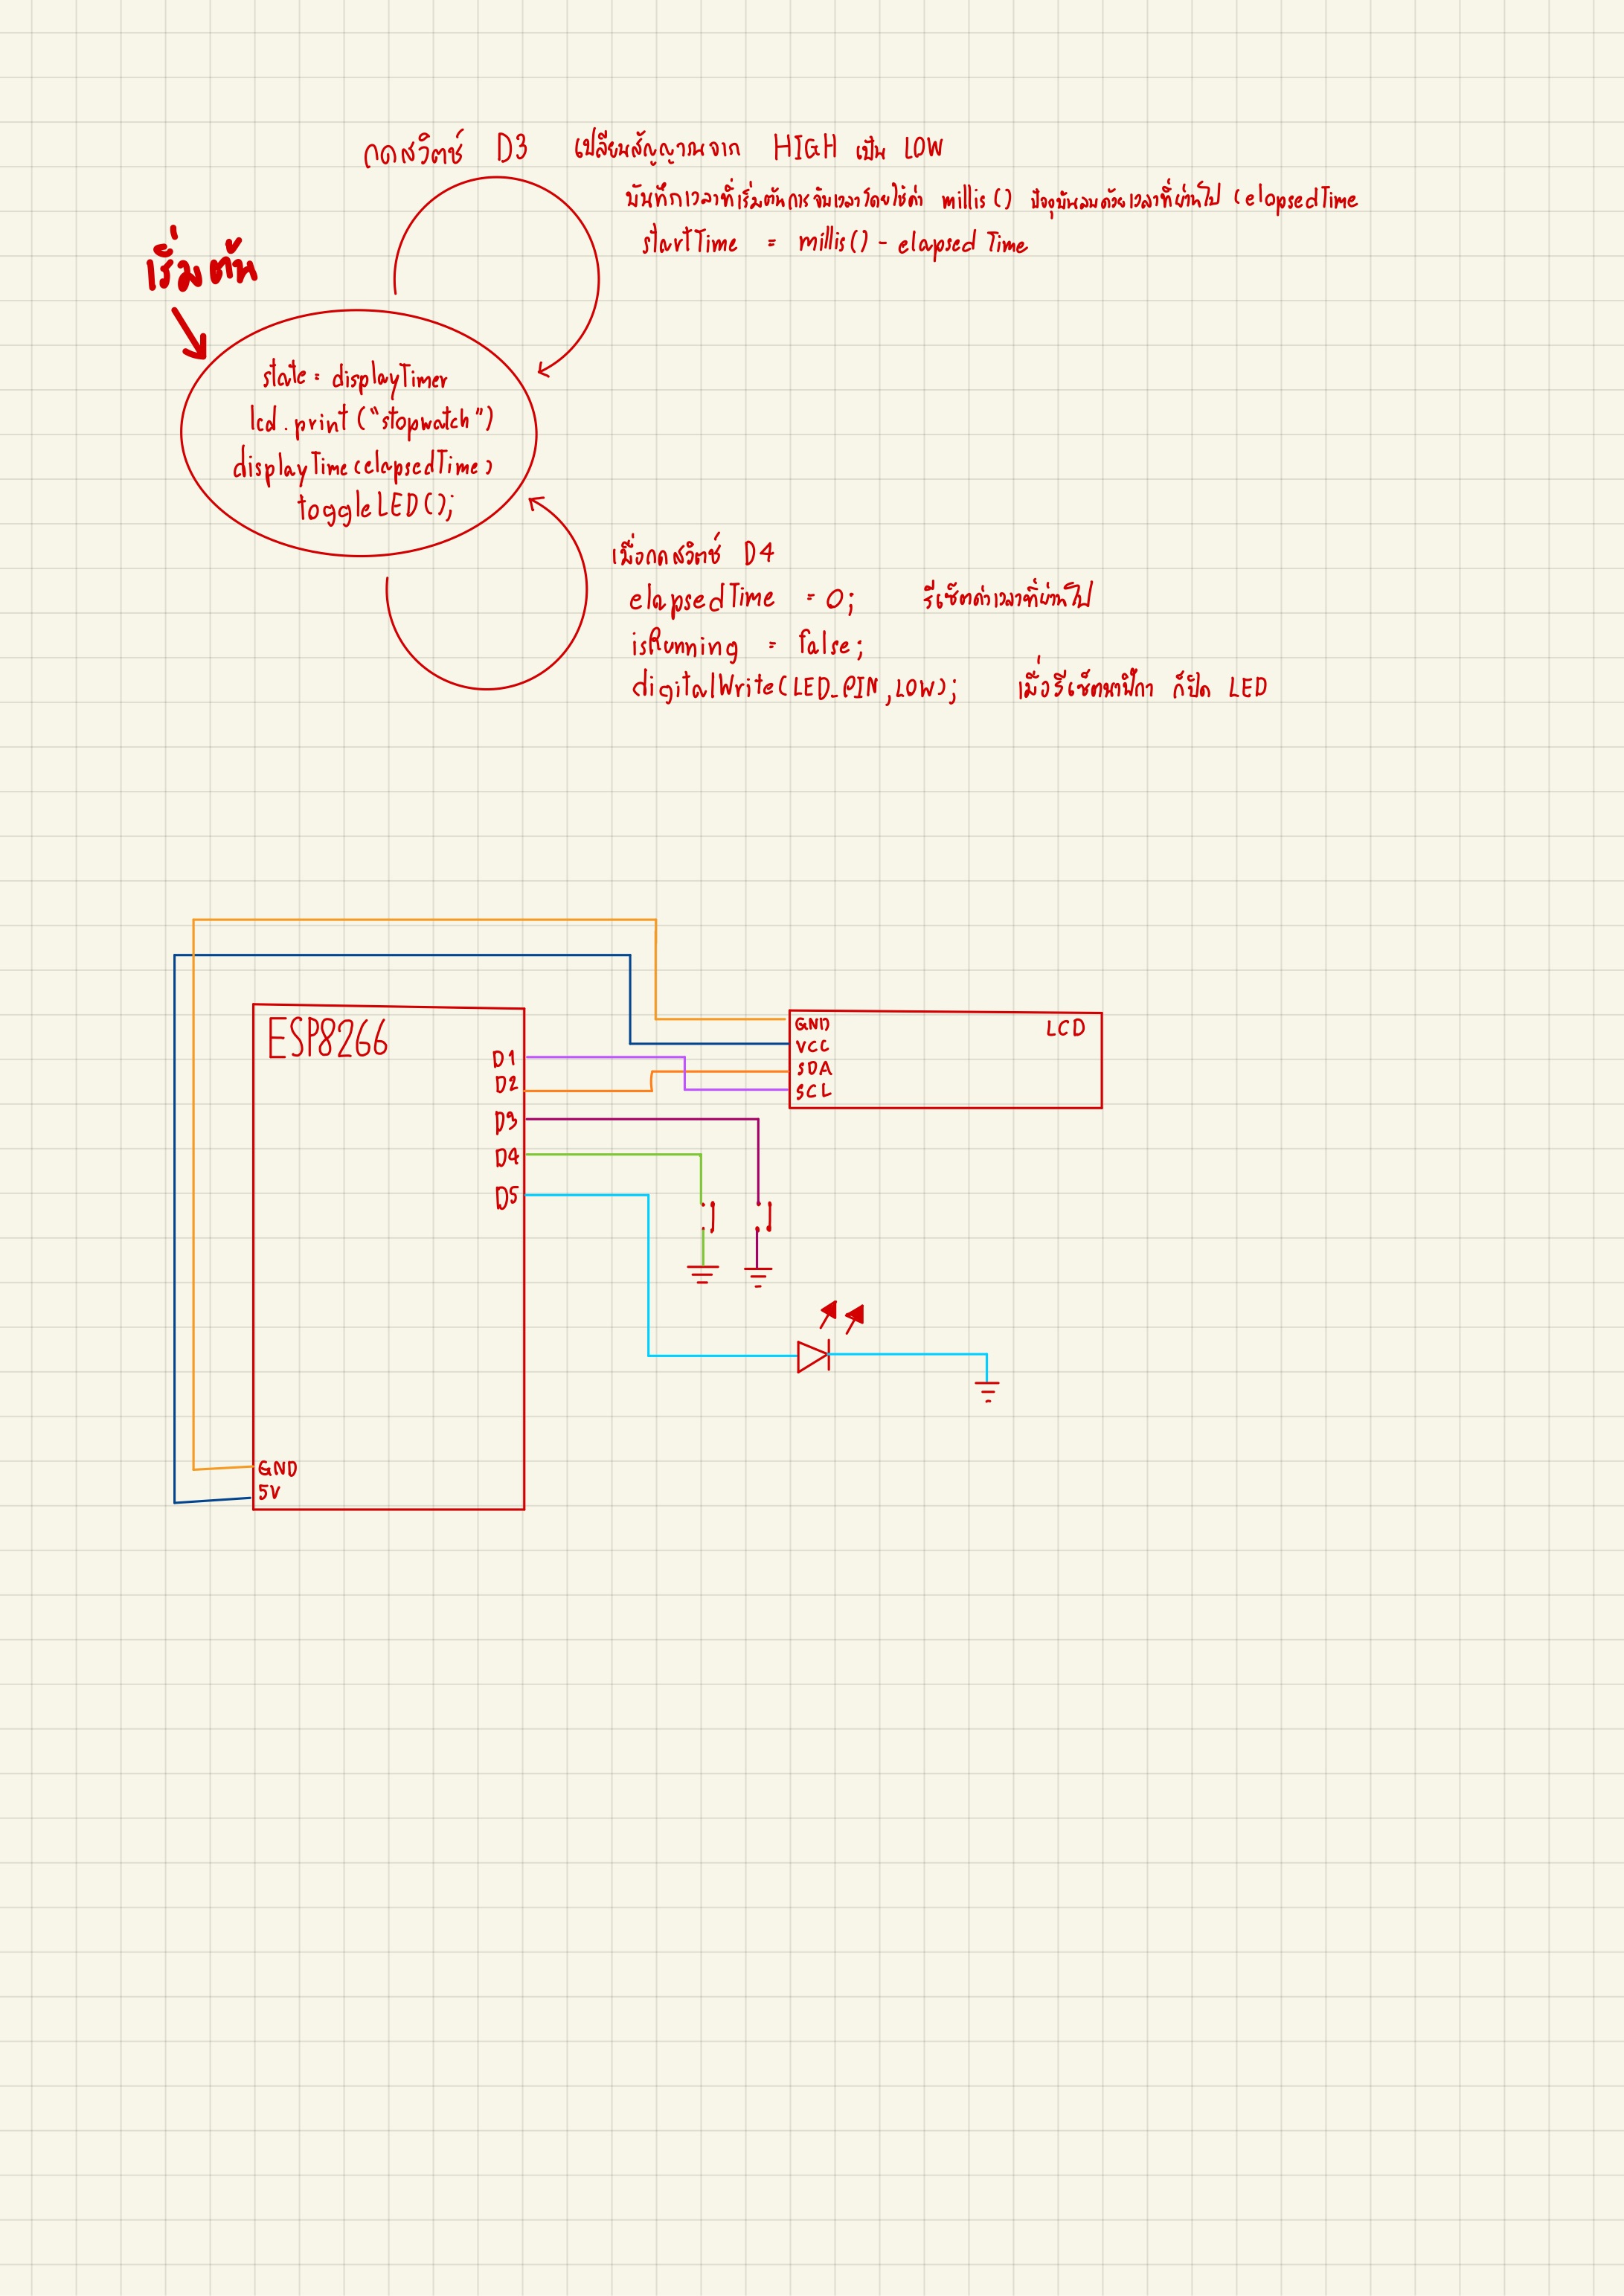 กดสวิตช์ D3 เปลี่ยนสัญญาณจาก HIGH เป็น LOW
บันทึกเวลาที่เริ่มต้นการจับเวลาโดยใช้ค่า millis() ปัจจุบันลบด้วยเวลาที่ผ่านไป (elapsedTime
startTime = millis() - elapsed Time
เริ่มต้น
state = displayTimer
lcd.print("stopwatch")
displayTime(elapsedTime)
toggleLED();
เมื่อกดสวิตช์ D4
elapsedTime = 0; รีเซ็ตค่าเวลาที่ผ่านไป
isRunning = false;
digitalWrite(LED_PIN, LOW); เมื่อรีเซ็ตนาฬิกา ก็ปิด LED
ESP8266
D1
D2
D3
D4
D5
GND
5V
LCD
GND
VCC
SDA
SCL